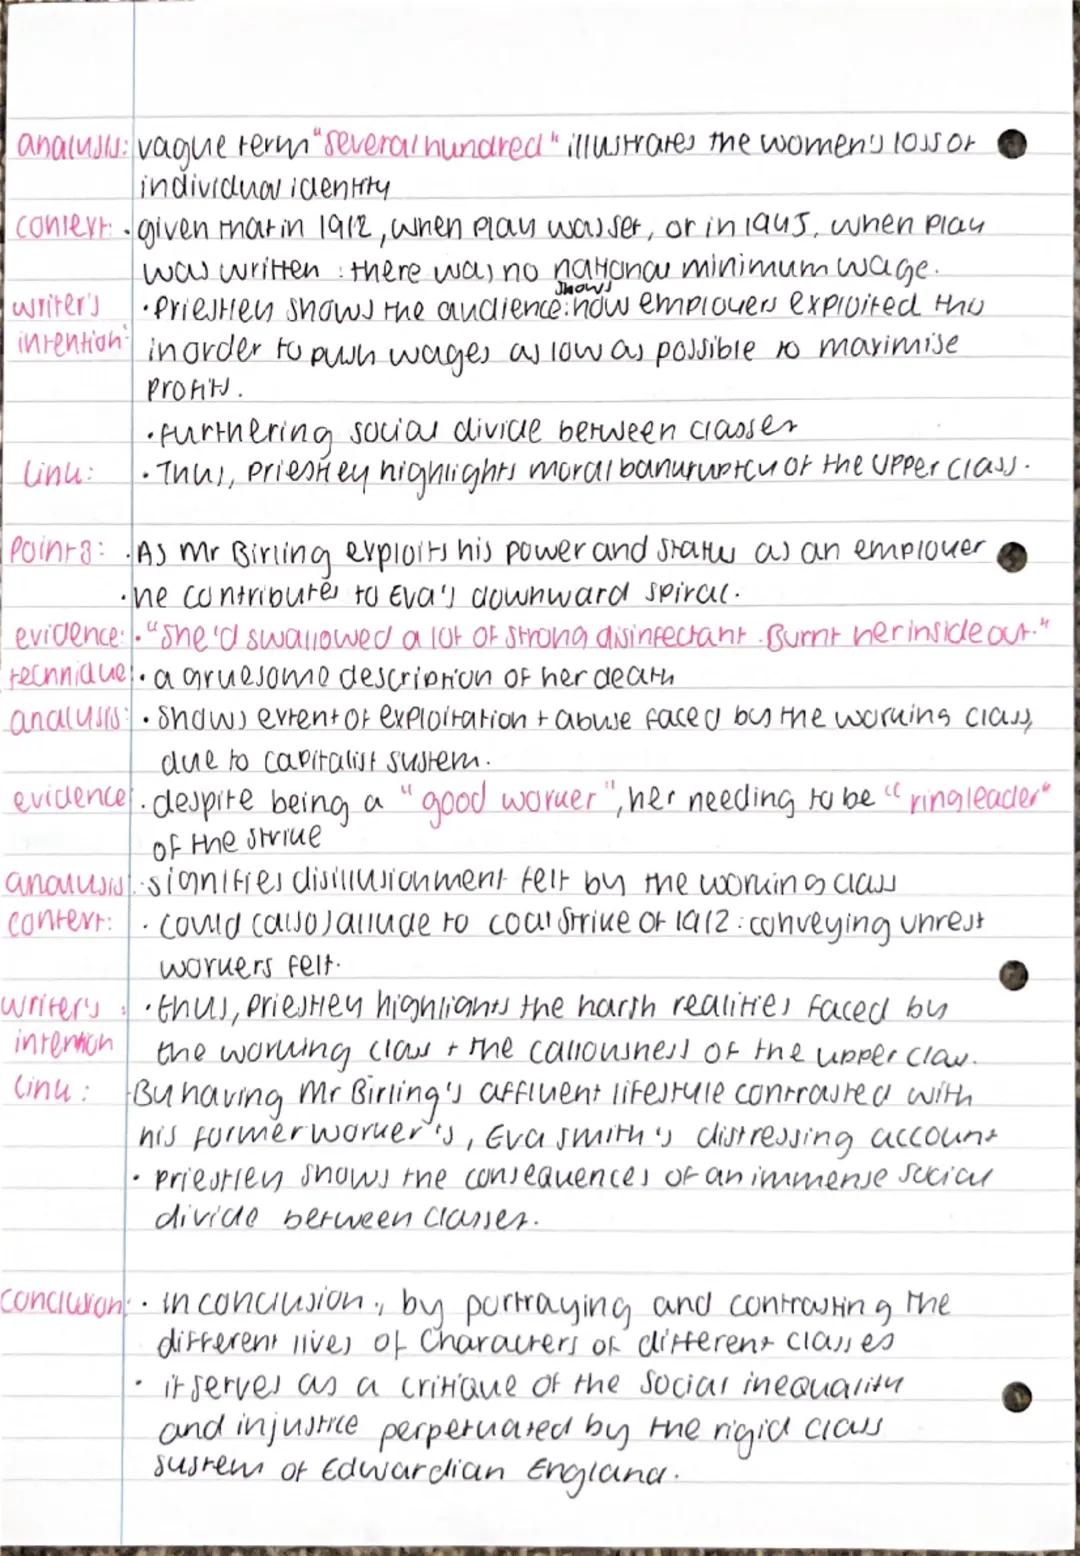 analysis: vague term "several hundred" illustrates the women's loss of
individual identity
context: · given that in 1912, when play was set, or in 1945, when play
was written : there was no national minimum wage.
writer's intention: · Priestley shows the audience: shows how employers exploited this
in order to push wages as low as possible to maximise
profits.
· furthering social divide between classes
link: · Thus, Priestley highlights moral bankruptcy of the upper class.
Point 3: · As Mr Birling exploits his power and status as an employer
· he contributes to Eva's downward spiral.
evidence: · "She'd swallowed a lot of strong disinfectant. Burnt her inside out."
technique: · a gruesome description of her death
analysis: · Shows extent of exploitation + abuse faced by the working class,
due to capitalist system.
evidence: · despite being a "good worker", her needing to be "ringleader"
of the strike
analysis: · signifies disillusionment felt by the working class
context: · could (also) allude to coal strike of 1912 : conveying unrest
workers felt.
writer's intention: · thus, priestley highlights the harsh realities faced by
the working class + the callousness of the upper class.
link: · By having Mr Birling's affluent lifestyle contrasted with
his former worker's, Eva Smith's distressing account
· priestley shows the consequences of an immense social
divide between classes.
conclusion: · in conclusion, by portraying and contrasting the
different lives of characters of different classes
· it serves as a critique of the social inequality
and injustice perpetuated by the rigid class
system of Edwardian England.